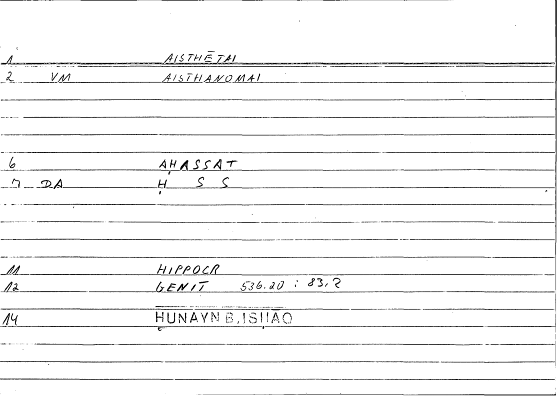 1 AISTHĒTAI
2 VM AISTHANOMAI
6 AḤASSAT
7 DA Ḥ S S
11 HIPPOCR
12 GENIT 536.20 : 83,2
14 ḤUNAYN B. ISḤAQ